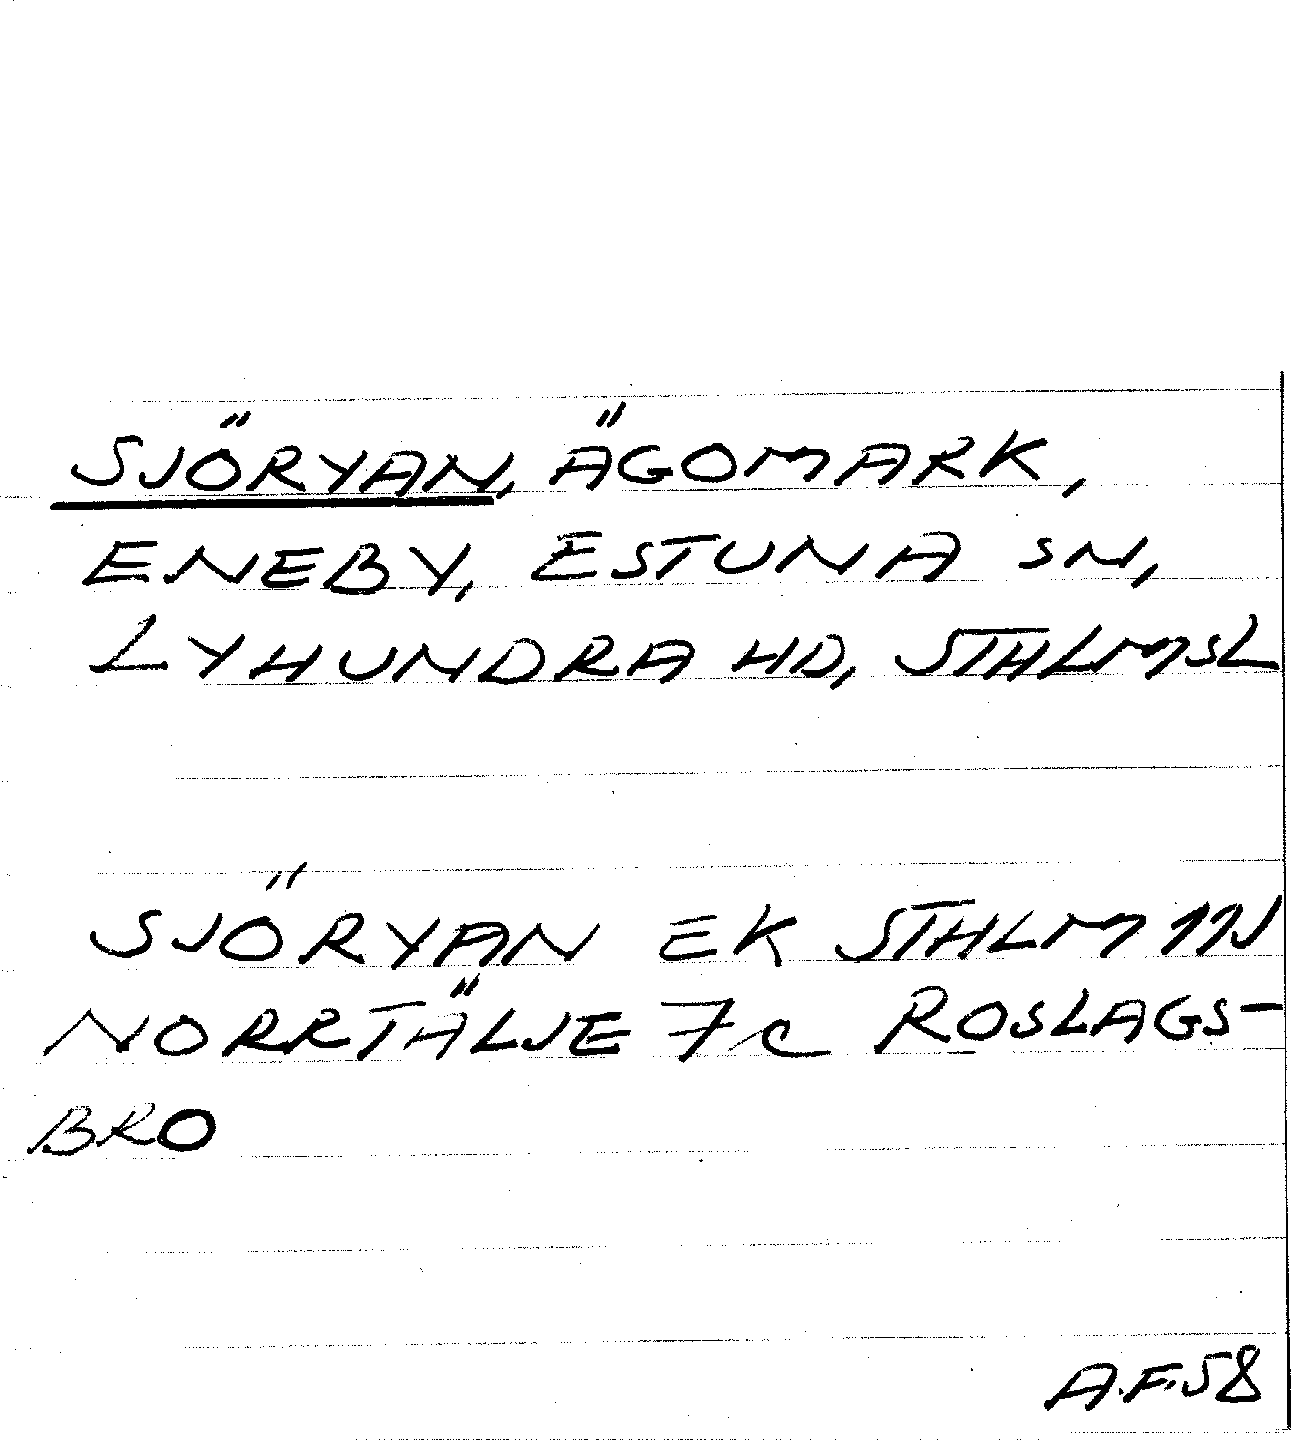 SJÖRYAN, ÄGOMARK,
ENEBY, ESTUNA SN,
LYHUNDRA HD, STHLMSL
SJÖRYAN EK STHLM 11N
NORRTÄLJE 7c ROSLAGS-
BRO
A.F.58